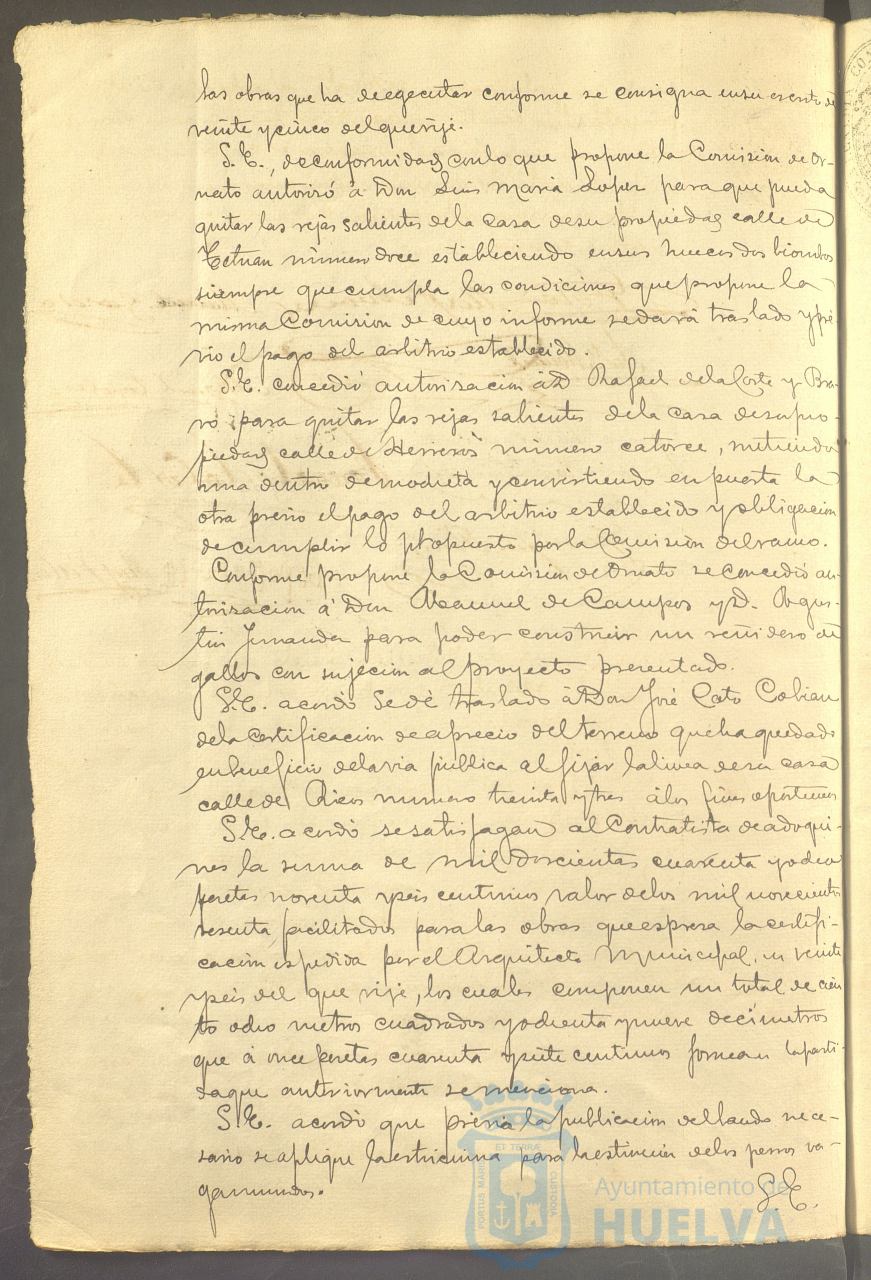 las obras que ha de egecutar conforme se consigna en su escrito de
veinte y cinco del que rije.
S. E., de conformidad con lo que propone la Comision de Or-
nato autorizó á Don Luis Maria Lopez para que pueda
quitar las rejas salientes de la casa de su propiedad calle de
Tetuan número doce estableciendo en sus huecos dos biombos
siempre que cumpla las condiciones que propone la
misma Comision de cuyo informe se dará traslado y pré-
vio el pago del arbitrio establecido.
S. E. concedió autorizacion á D Rafael de la Corte y Bra-
vo para quitar las rejas salientes de la casa de su pro-
piedad calle de Herreros número catorce, metiendo
una dentro de mocheta y convirtiendo en puerta la
otra prévio el pago del arbitrio establecido y obligacion
de cumplir lo propuesto por la Comision del ramo.
Conforme propone la Comision de Ornato se concedió au-
torizacion á Don Manuel de Campos y D. Agus-
tin Fernandez para poder construir un reñidero de
gallos con sujecion al proyecto presentado.
S. E. acordó se dé traslado á Don José Cato Cobian
de la certificacion de aprecio del terreno que ha quedado
en beneficio de la via pública al fijar la linea de su casa
calle de Ricos número treinta y tres á los fines oportunos
S. E. acordó se satisfagan al Contratista de adoqui-
nes la suma de mil doscientas cuarenta y ocho
pesetas noventa y seis centimos valor de los mil novecientos
sesenta, facilitados para las obras que espresa la certifi-
cacion espedida por el Arquitecto Municipal, en veinte
y seis del que rije, los cuales componen un total de cien-
to ocho metros cuadrados y ochenta y nueve decímetros
que á once pesetas cuarenta y siete centimos forman la parti-
da que anteriormente se menciona.
S. E. acordó que prévia la publicacion del bando nece-
sario se aplique la estricnina para la estincion de los perros va-
gamundos.
S. E.
PORTUS MARIS ET TERRAE CUSTODIA
Ayuntamiento de
HUELVA